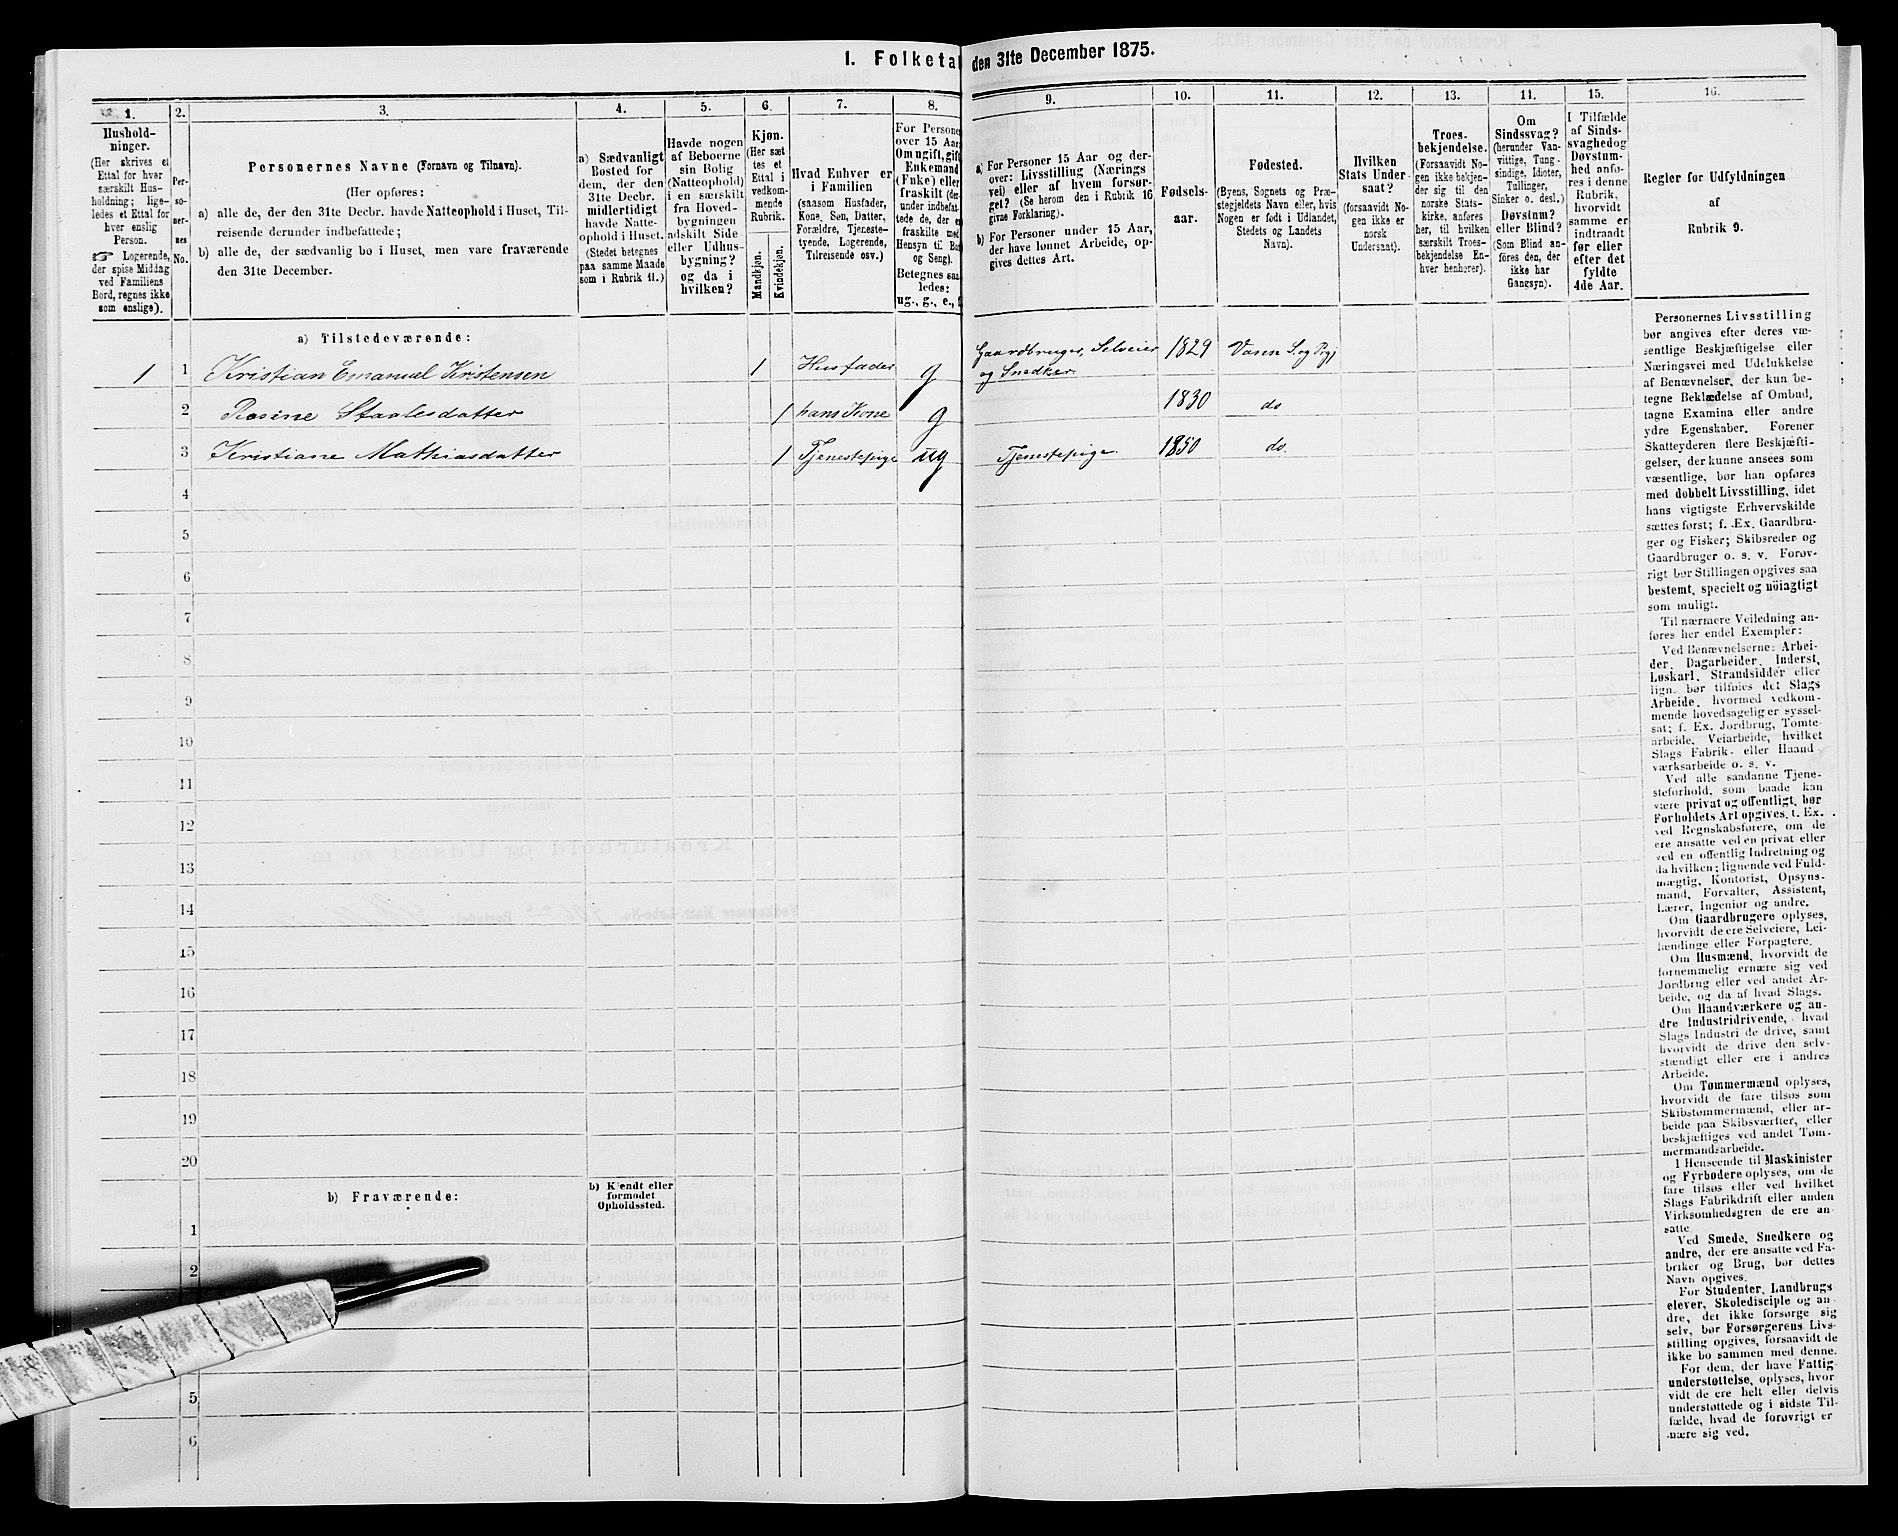 I. Folketal den 31te December 1875.
1. 2. 3. 4. 5. 6. 7. 8. 9. 10. 11. 12. 13. 11. 15. 16.
Hushold-
ninger.
(Her skrives et
Ettal for hver
særskilt Hus-
holdning; lige-
ledes et Ettal for
hver enslig
Person.
☞ Logerende,
der spise Middag
ved Familiens
Bord, regnes ikke
som enslige).
Per-
so-
ner-
nes
No.
Personernes Navne (Fornavn og Tilnavn).
(Her opføres:
a) alle de, der den 31te Decbr. havde Natteophold i Huset, Til-
reisende derunder indbefattede;
b) alle de, der sædvanlig bo i Huset, men vare fraværende
den 31te December.
a) Sædvanligt
Bosted for
dem, der den
31te Decbr.
midlertidigt
havde Natte-
ophold i Huset.
(Stedet betegnes
paa samme Maade
som i Rubrik 11.)
Havde nogen
af Beboerne
sin Bolig
(Natteophold)
i en særskilt
fra Hoved-
bygningen
adskilt Side
eller Udhus-
bygning?
og da i
hvilken?
Kjøn.
(Her sæt
tes et
Ettal i
vedkom-
mende
Rubrik.
Mandkjøn.
Kvindekjøn.
Hvad Enhver er
i Familien
(saasom Husfader,
Kone, Søn, Datter,
Forældre, Tjeneste-
tyende, Logerende,
Tilreisende osv.)
For Personer
over 15 Aar:
Om ugift, gift,
Enkemand
(Enke) eller
fraskilt (der-
under indbefat-
tede de, der er
fraskilte med
Hensyn til Bord
og Seng).
Betegnes saa-
ledes:
ug., g., e., f.
a) For Personer 15 Aar og der-
over: Livsstilling (Nærings
vei) eller af hvem forsør-
get? (Se herom den i Rubrik 16
givne Forklaring).
b) For Personer under 15 Aar,
der have lønnet Arbeide, op-
gives dettes Art.
Fødsels-
aar.
Fødested.
(Byens, Sognets og Præ-
stegjeldets Navn eller, hvis
Nogen er født i Udlandet,
Stedets og Landets
Navn).
Hvilken
Stats Under-
saat?
(forsaavidt No-
gen ikke er
norsk
Undersaat).
Troes-
bekjendelse.
(Forsaavidt No-
gen ikke bekjen-
der sig til den
norske Stats-
kirke, anføres
her, til hvilken
særskilt Troes-
bekjendelse En-
hver henhører).
Om
Sindssvag?
(herunder Van-
vittige, Tung-
sindige, Idioter,
Tullinger,
Sinker o. desl.)
Døvstum?
eller Blind?
(Som Blind an-
føres den, der
ikke har
Gangsyn).
I Tilfælde
af Sinds-
svaghed og
Døvstum-
hed anfø-
res i denne
Rubrik,
hvorvidt
samme er
indtraadt
før eller
efter det
fyldte
4de Aar.
Regler for Udfyldningen
af
Rubrik 9.
a) Tilstedeværende:
1 1 Kristian Emanuel Kristensen 1 Husfader g Gaardbruger, Selveier og Snedker. 1829 Vann S. og Prgj
2 Rosine Staalesdatter 1 hans Kone g 1830 do
3 Kristiane Mathiasdatter 1 Tjenestepige ug Tjenestepige. 1850 do.
4
5
6
7
8
9
10
11
12
13
14
15
16
17
18
19
20
b) Fraværende:
b) Kjendt eller
formodet
Opholdssted.
1
2
5
6
Personernes Livsstilling
bør angives efter deres væ-
sentlige Beskjæftigelse eller
Næringsvei med Udelukkelse
af Benævnelser, der kun be-
tegne Beklædelse af Ombud,
tagne Examina eller andre
ydre Egenskaber. Forener
Skatteyderen flere Beskjæfti-
gelser, der kunne ansees som
væsentlige, bør han opføres
med dobbelt Livsstilling, idet
hans vigtigste Erhvervskilde
sættes først; f. Ex. Gaardbru-
ger og Fisker; Skibsreder og
Gaardbruger o. s. v. Forøv-
rigt bør Stillingen opgives saa
bestemt, specielt og nöiagtigt
som muligt.
Til nærmere Veiledning an-
føres her endel Exempler:
Ved Benævnelserne: Arbei-
der, Dagarbeider, Inderst,
Løskarl, Strandsidder eller
lign. bør tilføies det Slags
Arbeide, hvormed vedkom-
mende hovedsagelig er syssel-
sat; f. Ex. Jordbrug, Tomte-
arbeide, Veiarbeide, hvilket
Slags Fabrik- eller Haand
værksarbeide o. s. v.
Ved alle saadanne Tjene-
steforhold, som baade kan
være privat og offentligt, bør
Forholdets Art opgives, t. Ex.
ved Regnskabsførere, om de
ere ansatte ved en privat eller
ved en offentlig Indretning og
da hvilken; lignende ved Fuld-
mægtig, Kontorist, Opsyns-
mand, Forvalter, Assistent,
Lærer, Ingeniør og andre.
Om Gaardbrugere oplyses,
hvorvidt de ere Selveiere, Lei-
lændinge eller Forpagtere.
Om Husmænd, hvorvidt de
fornemmelig ernære sig ved
Jordbrug eller ved andet Ar-
beide, og da af hvad Slags.
Om Haandværkere og an-
dre Industridrivende, hvad
Slags Industri de drive, samt
hvorvidt de drive den selv-
stændigt eller ere i andres
Arbeide.
Om Tømmermænd oplyses,
hvorvidt de fare tilsøs som
Skibstømmermænd, eller ar-
beide paa Skibsværfter, eller
beskjæftiges ved andet Tøm-
mermandsarbeide.
I Henseende til Maskinister
og Fyrbødere oplyses, om de
fare tilsøs eller ved hvilket
Slags Fabrikdrift eller anden
Virksomhedsgren de ere an-
satte.
Ved Smede, Snedkere og
andre, der ere ansatte ved Fa-
briker og Brug, bør dettes
Navn opgives.
For Studenter, Landbrugs
elever, Skoledisciple og an-
dre, der ikke forsørge sig
selv, bør Forsørgerens Livs-
stilling opgives, forsaavidt de
ikke bo sammen med denne.
For dem, der have Fattig-
understøttelse, oplyses, hvor-
vidt de ere helt eller delvis
understøttede og i sidste Til-
fælde, hvad de forøvrigt er
nære sig ved.